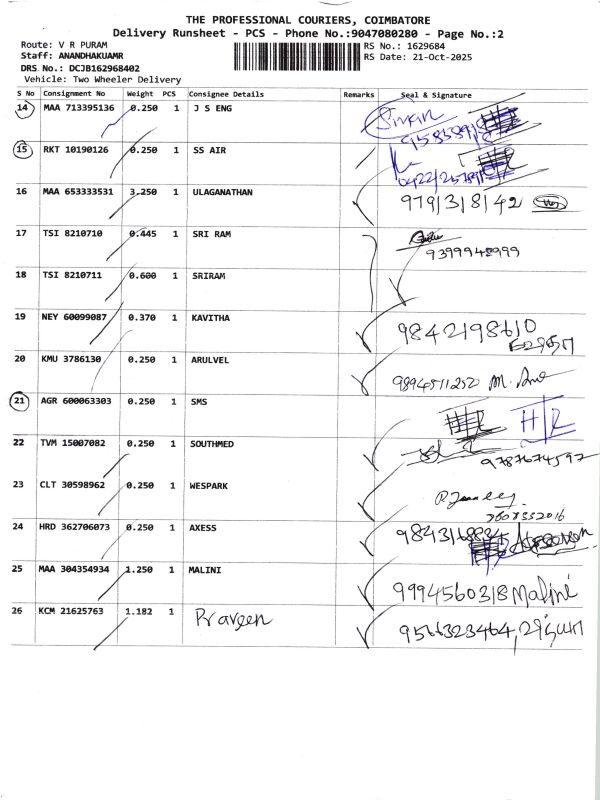 THE PROFESSIONAL COURIERS, COIMBATORE
Delivery Runsheet - PCS - Phone No.:9047080280 - Page No.:2
Route: V R PURAM
RS No.: 1629684
Staff: ANANDHAKUAMR
RS Date: 21-Oct-2025
DRS No.: DCJB162968402
Vehicle: Two Wheeler Delivery
S No Consignment No Weight PCS Consignee Details Remarks Seal & Signature
14 MAA 713395136 0.250 1 J S ENG
15 RKT 10190126 0.250 1 SS AIR
16 MAA 653333531 3.250 1 ULAGANATHAN 9791318142
17 TSI 8210710 0.445 1 SRI RAM
18 TSI 8210711 0.600 1 SRIRAM
19 NEY 60099087 0.370 1 KAVITHA 9842198610
20 KMU 3786130 0.250 1 ARULVEL 9894511252
21 AGR 600063303 0.250 1 SMS H/R
22 TVM 15007082 0.250 1 SOUTHMED 9787674597
23 CLT 30598962 0.250 1 WESPARK
24 HRD 362706073 0.250 1 AXESS
25 MAA 304354934 1.250 1 MALINI 9994560318 Malini
26 KCM 21625763 1.182 1 Praveen 9566323464,